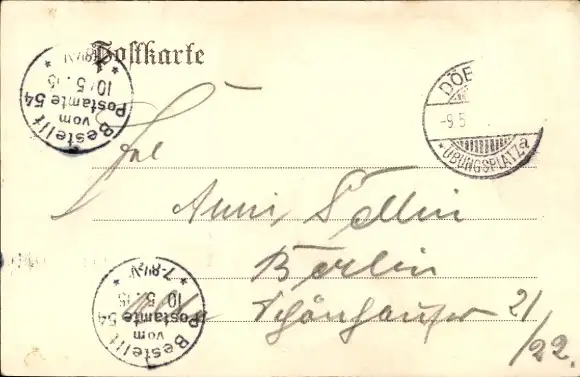 Postkarte
Bestellt
vom
Postamte 54
10/5.
7-8½N
DÖB
-9.5
ÜBUNGSPLATZ a
Frl
Anni Tellin
Berlin
Schönhauser 21/22.
Bestellt
vom
Postamte 54
10.5.
7-8½N